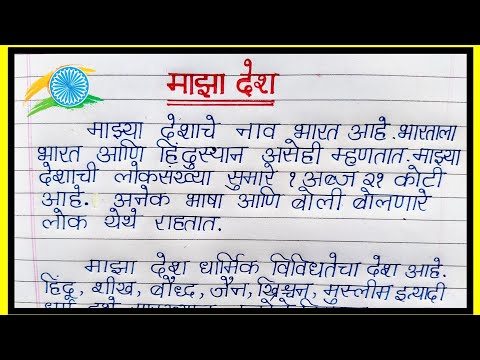 माझा देश
माझ्या देशाचे नाव भारत आहे.भारताला
भारत आणि हिंदुस्थान असेही म्हणतात.माझ्या
देशाची लोकसंख्या सुमारे १ अब्ज २१ कोटी
आहे. अनेक भाषा आणि बोली बोलणारे
लोक येथे राहतात.
माझा देश धार्मिक विविधतेचा देश आहे.
हिंदू, शीख, बौद्ध, जैन, ख्रिश्चन, मुस्लीम इत्यादी